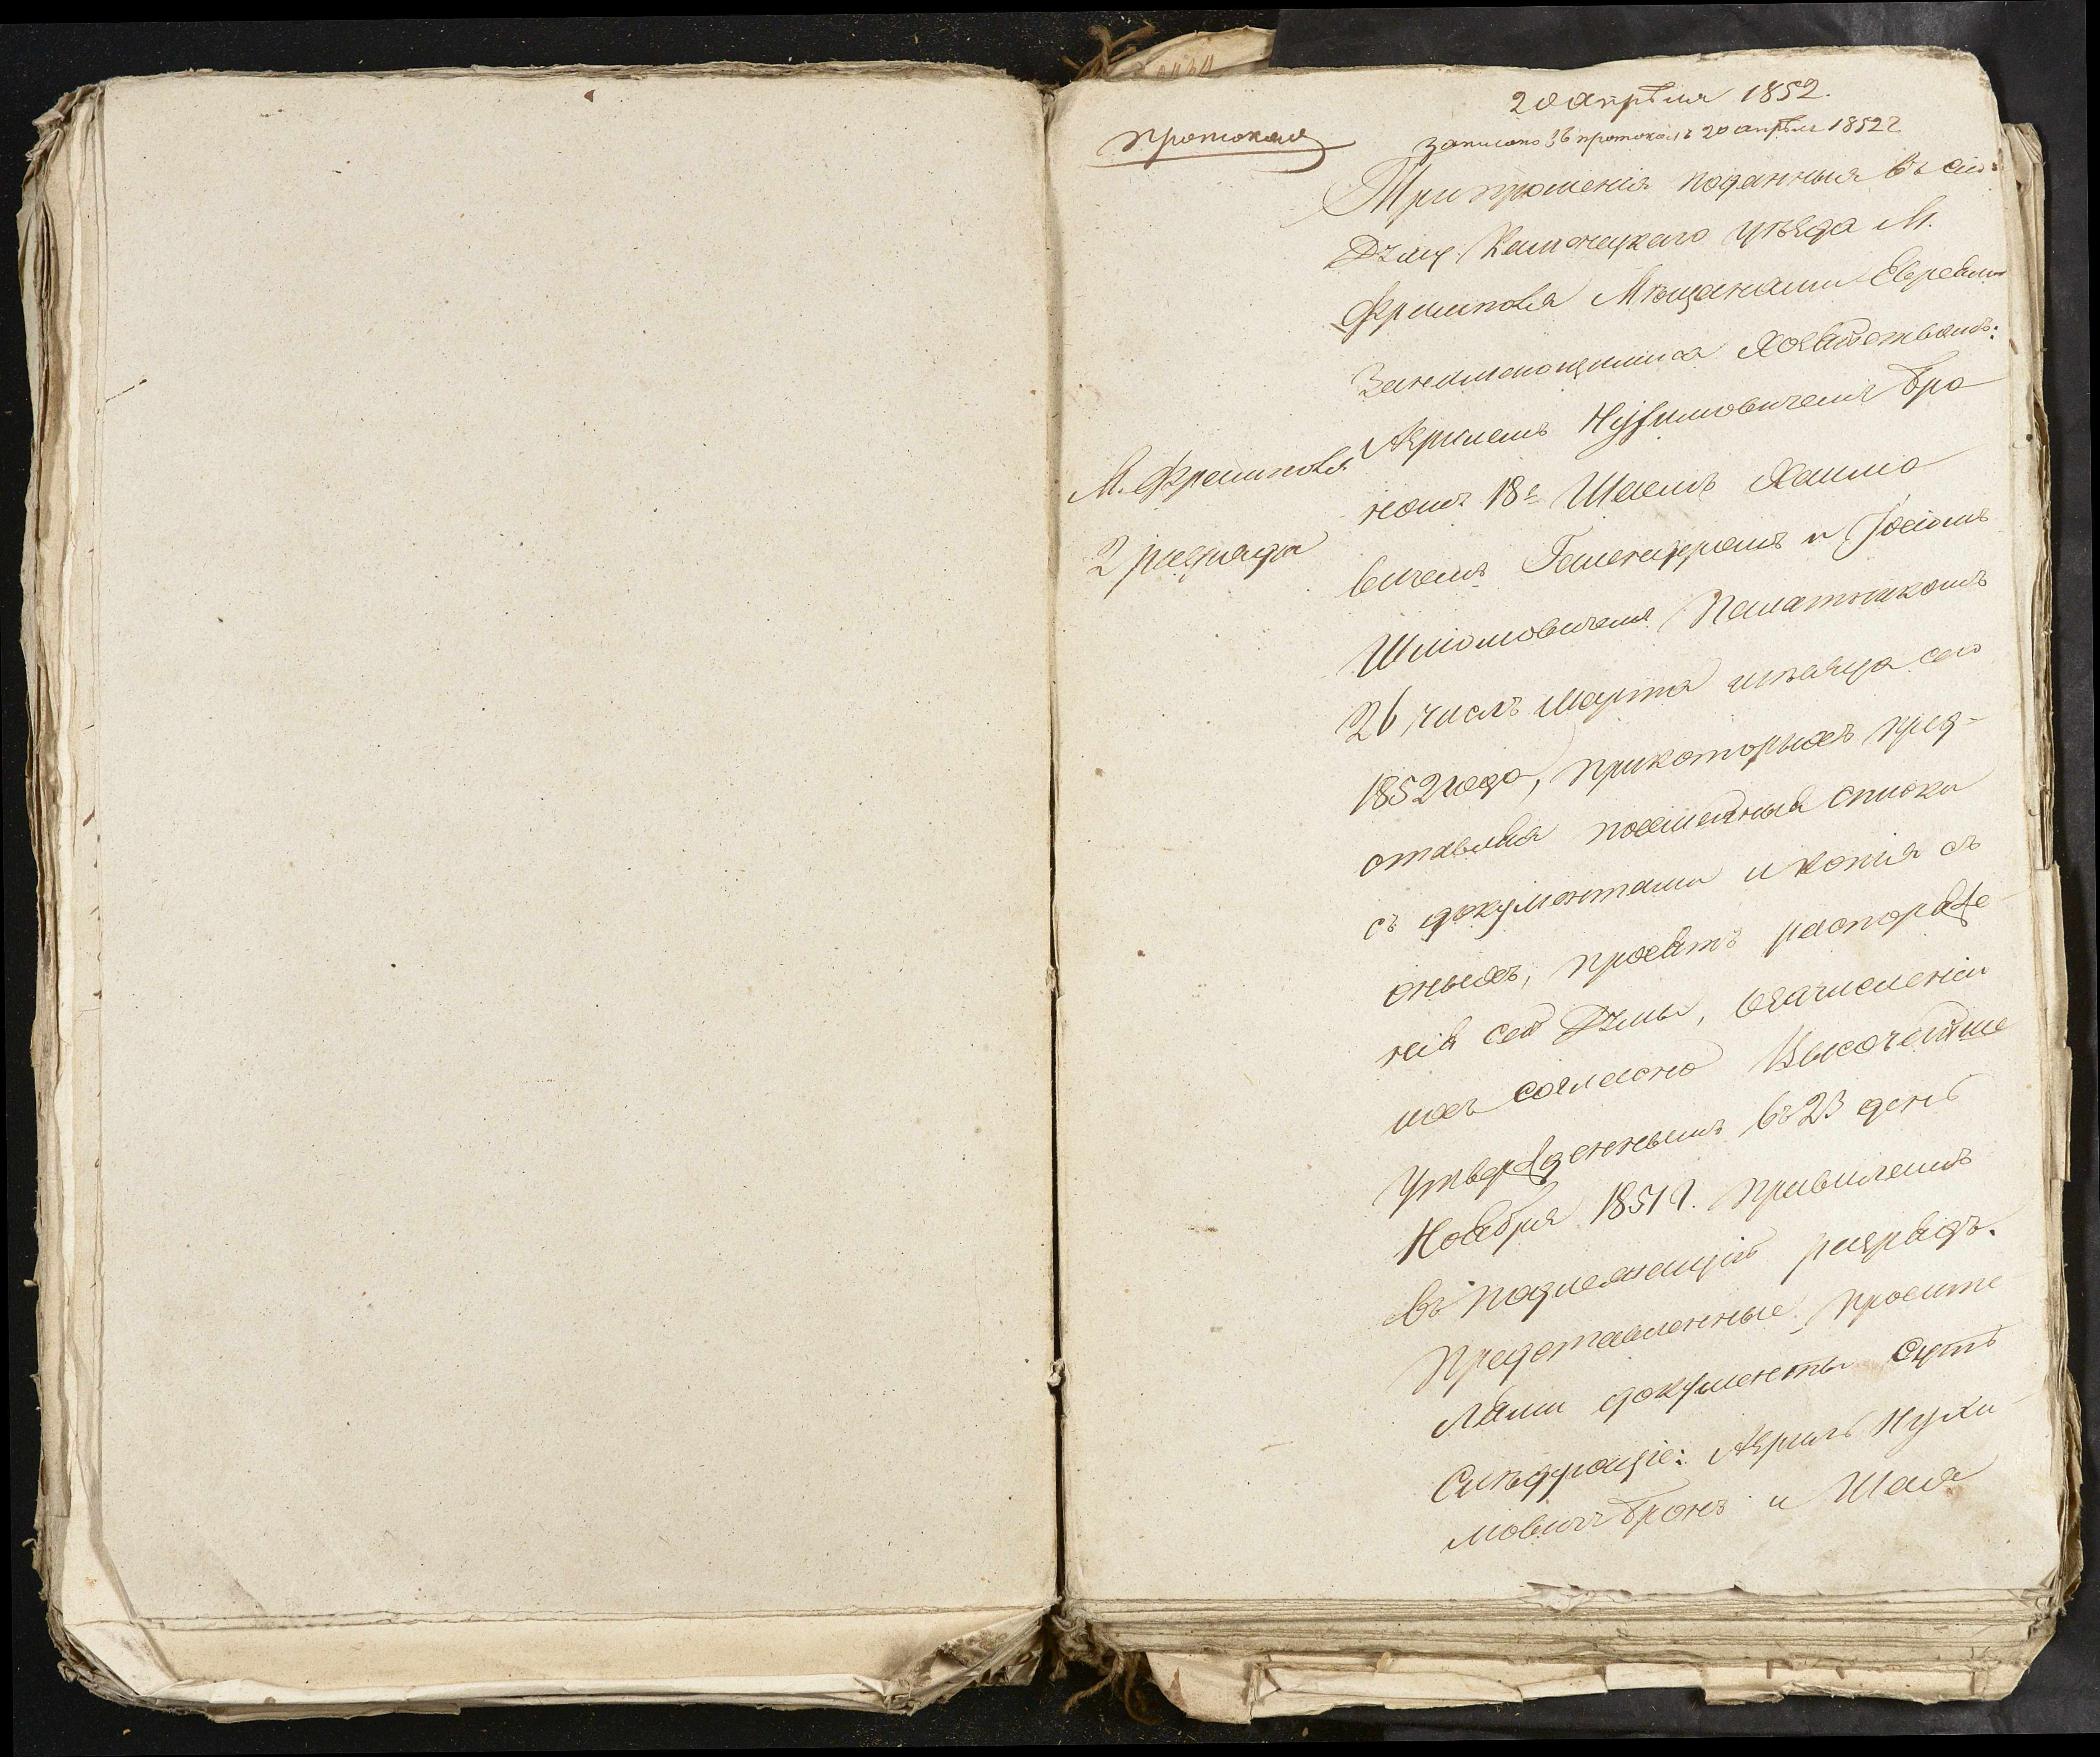 20 апрѣля 1852.
протоколъ
записано въ протоколъ 20 апрѣля 1852 г
Три прошенія поданныя въ сію
Думу Каменецкаго уѣзда М.
Фрампола Мѣщанами Евреями
Занимающимися Хозяйствомъ:
Азрилемъ Нухимовичемъ Бро
номъ 18 Шаемъ Хаимо
вичемъ и Іосіомъ
Шліомовичемъ Палатникомъ
М. Фрамполя
2 разряда
26 числъ Марта мѣсяца сего
1852 года, прикоторыхъ пред-
ставляя посемейныя списки
съ документами и копія съ
оныхъ, просятъ распоряже-
нія сей Думы, озачисленіи
ихъ согласно Высочайше
Утвержденнымъ въ 23 день
Ноября 1851 г. правиламъ
въ подлежащій разрядъ.
Представленные просите
лями документы суть
Слѣдующіе: Азриль Нухи-
мовичъ Бронъ и Шая